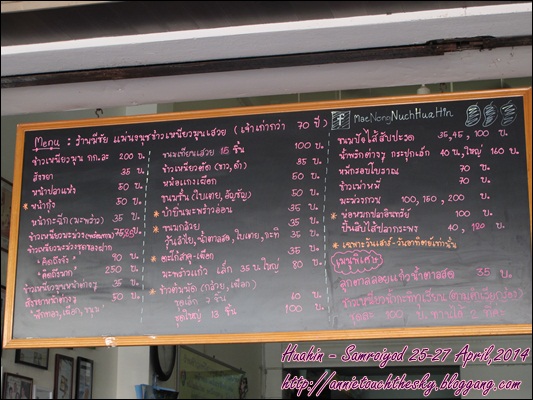 Menu : ร้านมีชัย แม่นงนุชข้าวเหนียวมูนเสวย (เจ้าเก่ากว่า 70 ปี)
Mae Nong Nuch Hua Hin
ข้าวเหนียวมูน กก.ละ 200 บ.
สังขยา 35 บ.
หน้าปลาแห้ง 50 บ.
* หน้ากุ้ง 50 บ.
หน้ากระฉีก (มะพร้าว) 35 บ.
ข้าวเหนียวมะม่วง
90 บ.
250 บ.
35 บ.
50 บ.
ขนมเทียนเสวย 15 ชิ้น 100 บ.
ข้าวเหนียวตัด (ขาว, ดำ) 35 บ.
หม้อแกงเผือก 50 บ.
ขนมชั้น (ใบเตย, อัญชัญ) 50 บ.
* บ้าบิ่นมะพร้าวอ่อน 35 บ.
* ขนมกล้วย 35 บ.
วุ้นไส้ไข่, น้ำตาลสด, ใบเตย, กะทิ 35 บ.
* ตะโก้สาคู-เผือก 35 บ.
มะพร้าวแก้ว เล็ก 35 บ. ใหญ่ 80 บ.
* ข้าวต้มมัด (กล้วย, เผือก)
ชุดเล็ก 7 ชิ้น 60 บ.
ชุดใหญ่ 13 ชิ้น 100 บ.
ขนมปังไส้สับปะรด 35, 45, 100 บ.
น้ำพริกต่างๆ กระปุกเล็ก 40 บ, ใหญ่ 160 บ.
หมี่กรอบโบราณ 70 บ.
ข้าวเม่าหมี่ 70 บ.
มะม่วงกวน 100, 150, 200 บ.
* ห่อหมกปลาอินทรีย์ 100 บ.
ปั้นสิบไส้ปลากระพง 40, 120 บ.
* เฉพาะวันเสาร์-วันอาทิตย์เท่านั้น
เมนูพิเศษ
ลูกตาลลอยแก้วน้ำตาลสด 35 บ.
ข้าวเหนียวน้ำกะทิทุเรียน
ชุดละ 100 บ. ทานได้ 2 ที่
Huahin - Samroiyod 25-27 April,2014
http://annietouchthesky.bloggang.com